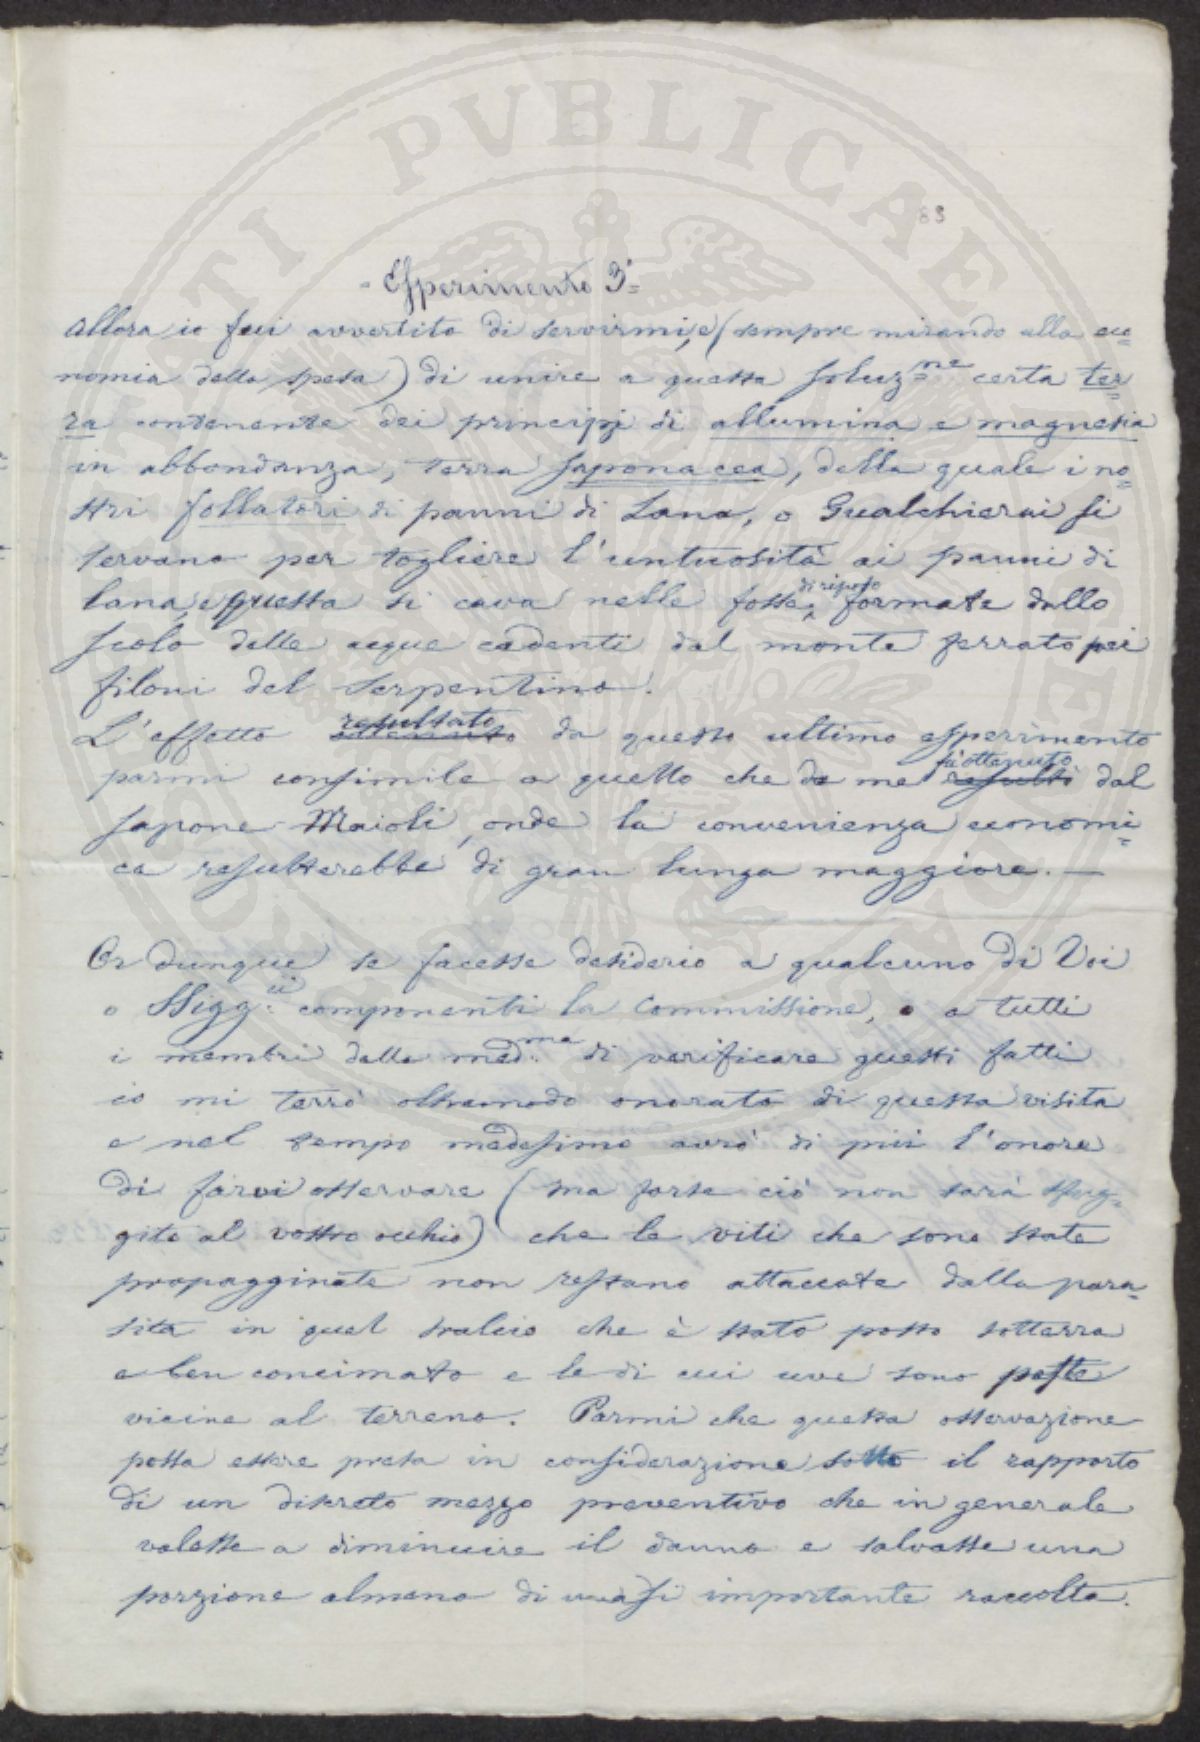 83
- Esperimento 3°=
Allora io fui avvertito di servirmi, e (sempre mirando alla eco=
nomia della spesa) di unire a questa soluz.ne certa ter=
ra contenente dei principj di allumina e magnesia
in abbondanza, terra saponacea, della quale i no=
stri follatori di panni di Lana, o Gualchierai si
servano per togliere l'untuosità ai panni di
lana, e questa si cava nelle fosse di riposo formate dallo
scolo delle acque cadenti dal monte ferrato pei
filoni del Serpentino.
L'effetto resultato da questo ultimo esperimento
parmi consimile a quello che da me fù ottenuto dal
sapone Maioli, onde la convenienza economi=
ca resulterebbe di gran lunga maggiore. —
Or dunque se facesse desiderio a qualcuno di Voi
o SSigg.ri componenti la Commissione, o a tutti
i membri della med.ma di verificare questi fatti
io mi terrò oltremodo onorato di questa visita
e nel tempo medesimo avrò di più l'onore
di farvi osservare (ma forse ciò non sarà sfug=
gito al vostro occhio) che le viti che sono state
propagginate non restano attaccate dalla para=
sita in quel tralcio che è stato posto sotterra
e ben concimato e le di cui uve sono poste
vicine al terreno. Parmi che questa osservazione
possa essere presa in considerazione sotto il rapporto
di un discreto mezzo preventivo che in generale
valesse a diminuire il danno e salvasse una
porzione almeno di una sì importante raccolta.
PVBLICAE VTILITATI